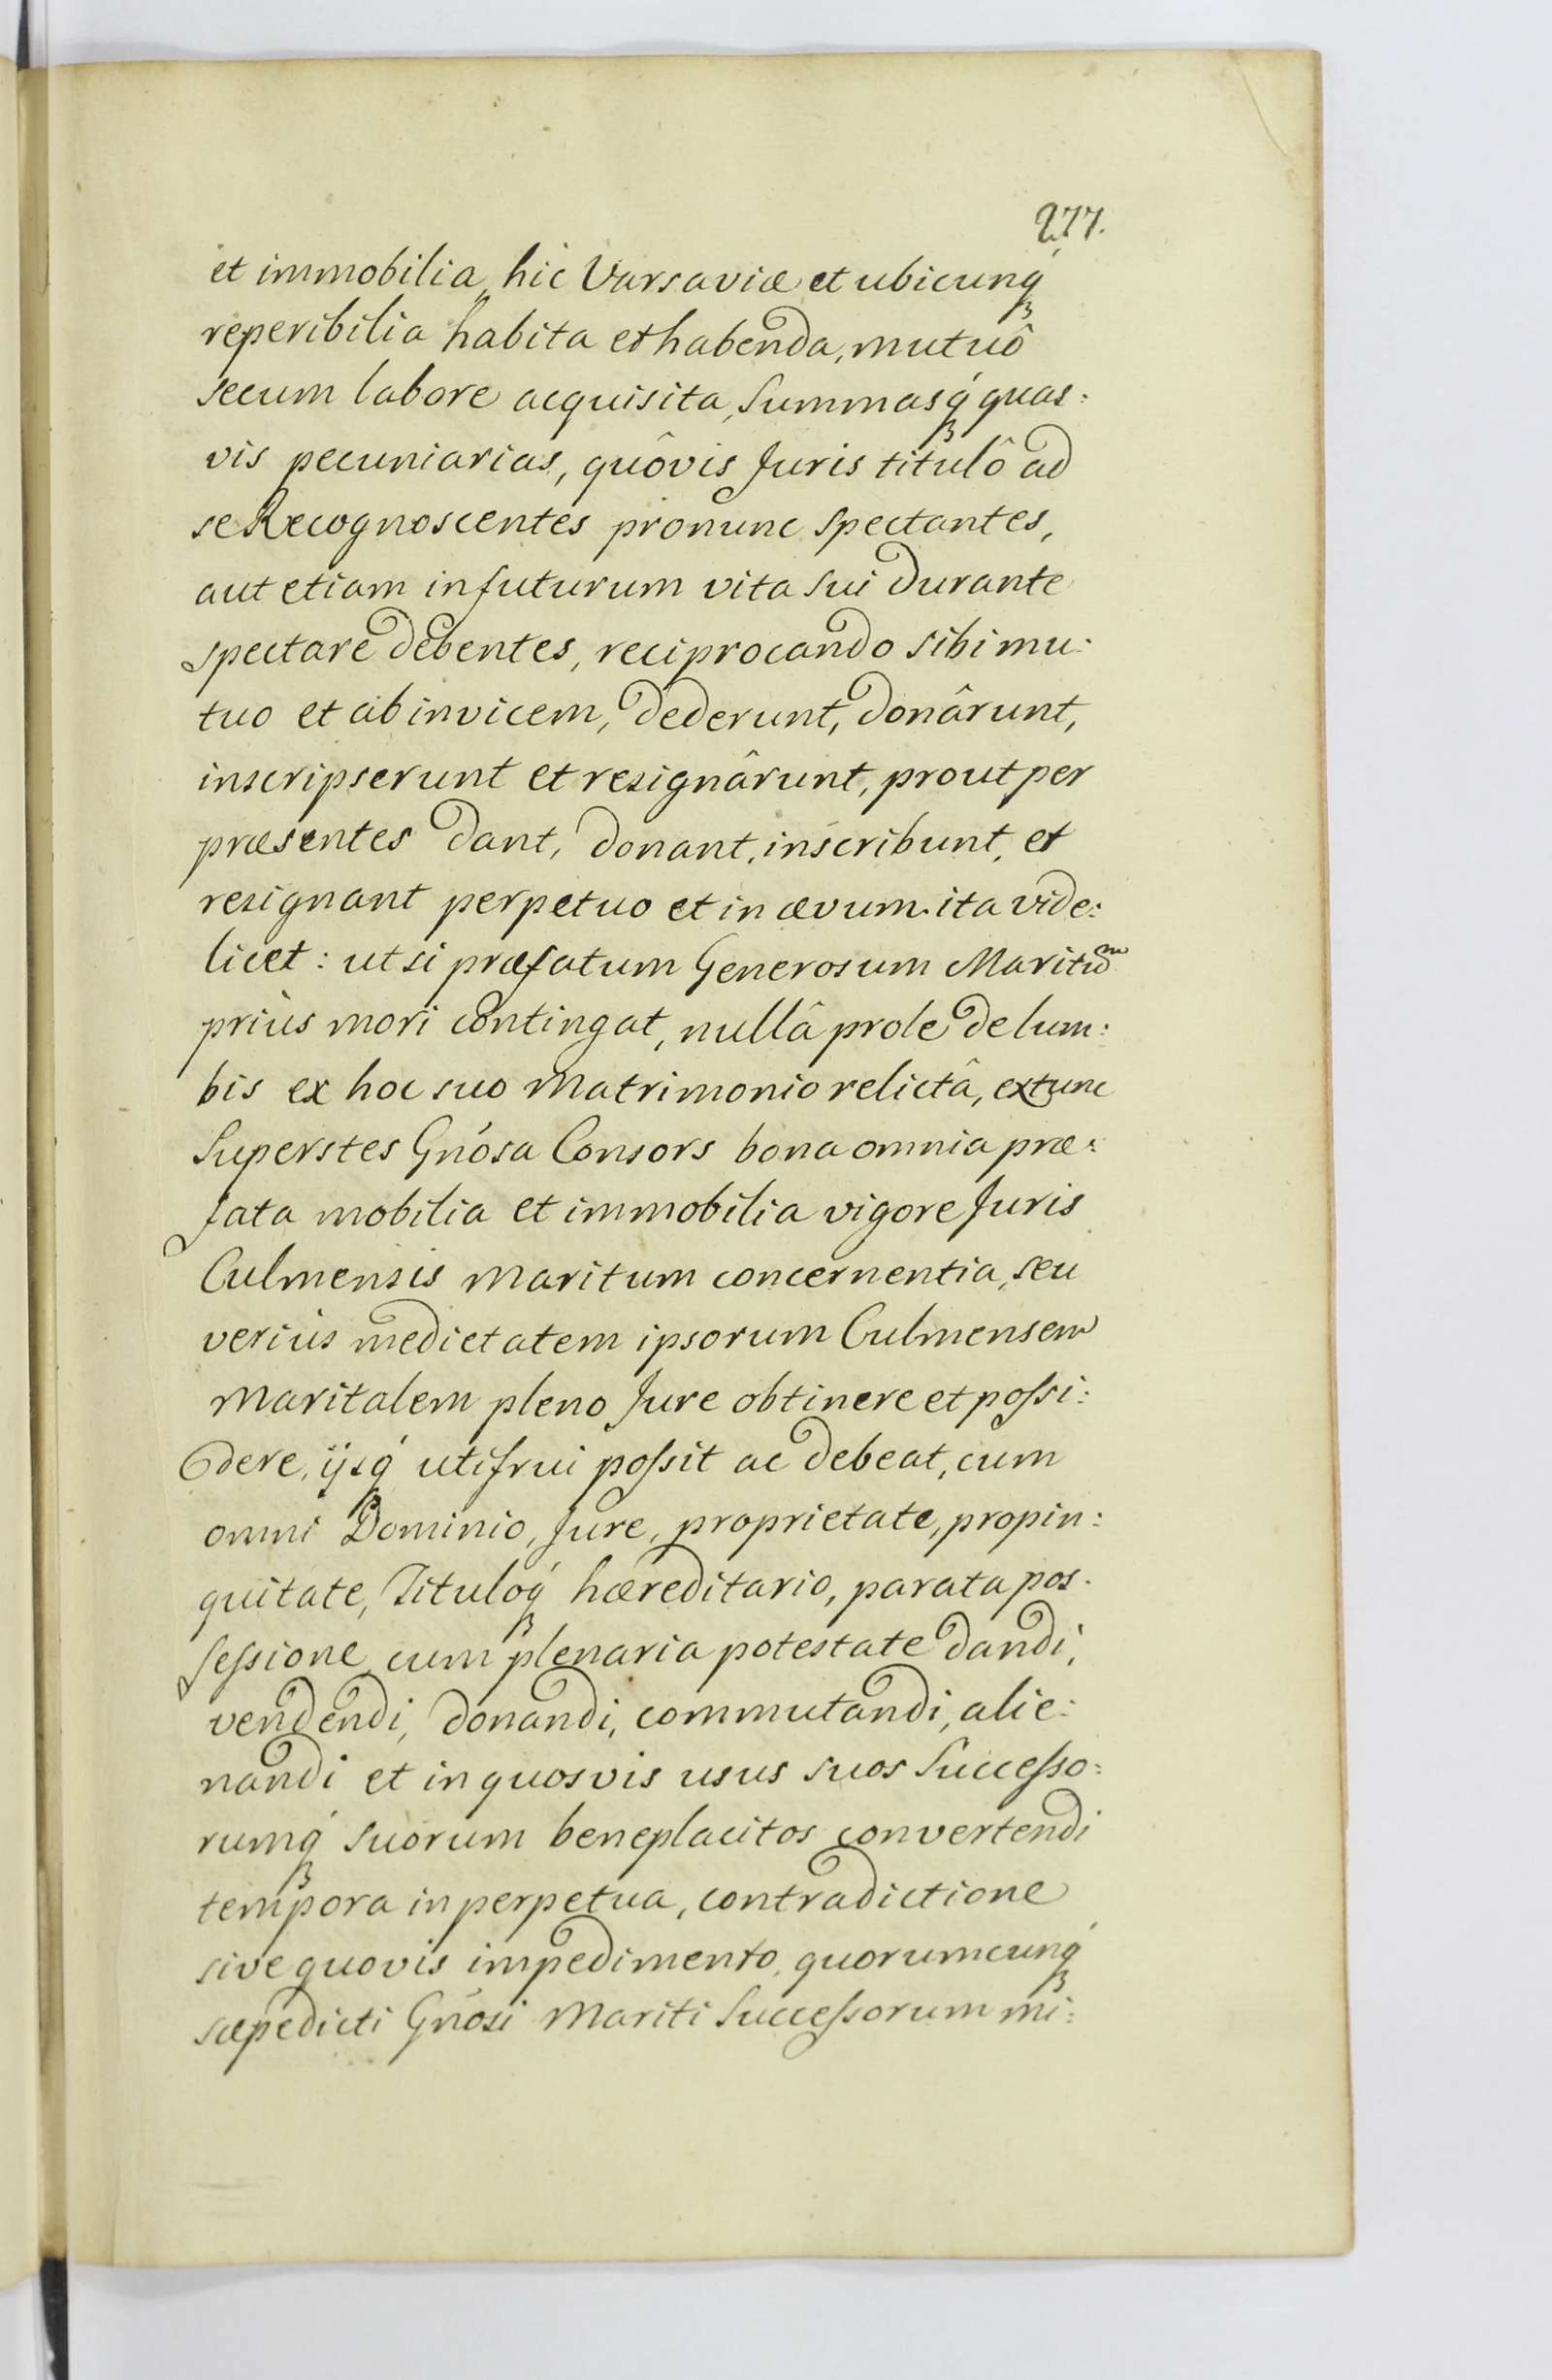 277.
et immobilia, hic Varsaviæ et ubicunq́ꝫ
reperibilia habita et habenda, mutuô
secum labore acquisita, Summasq́ꝫ quas:
vis pecuniarias, quôvis Juris titulô ad
se Recognoscentes pronunc spectantes,
aut etiam in futurum vita sui durante
spectare debentes, reciprocando sibi mu:
tuo et ab invicem, dederunt, donârunt,
inscripserunt et resignârunt, prout per
præsentes dant, donant, inscribunt, et
resignant perpetuo et in ævum. ita vide:
licet: ut si præfatum Generosum Maritũm
priùs mori contingat, nullâ prole de lum:
bis ex hoc suo Matrimonio relictâ, extunc
Superstes Gńosa Consors bona omnia præ:
fata mobilia et immobilia vigore Juris
Culmensis Maritum concernentia, seu
veriùs medietatem ipsorum Culmensem
Maritalem pleno Jure obtinere et poſsi:
dere, ijsq́ꝫ utifrui poſsit ac debeat, cum
omni Dominio, Jure, proprietate, propin:
quitate, Tituloq́ꝫ hæreditario, parata pos:
seſsione, cum plenaria potestate dandi,
vendendi, donandi, commutandi, alie:
nandi et in quosvis usus suos Succeſso:
rumq́ꝫ suorum beneplacitos convertendi
tempora in perpetua, contradictione
sive quovis impedimento, quorumcunq́ꝫ
sæpedicti Gńosi Mariti Succeſsorum mi: